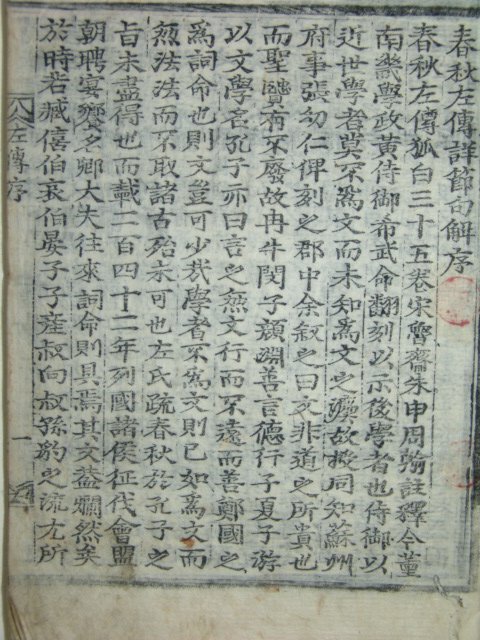 春秋左傳詳節句解序
春秋左傳狐白三十五卷宋魯齋朱申周翰註釋今董
南畿學政黃侍御希武命翻刻以示後學者也侍御以
近世學者莫不爲文而未知爲文之殫故授同知蘇州
府事張幼仁俾刻之郡中余叙之曰文非道之所貴也
而聖贒有不廢故冉牛閔子顔淵善言德行子夏子游
以文學名孔子亦曰言之無文行而不遠而善鄭國之
爲詞命也則文豈可少哉學者不爲文則已如爲文而
無法法而不取諸古殆未可也左氏疏春秋於孔子之
旨未盡得也而載二百四十二年列國諸侯征伐會盟
朝聘宴饗名卿大夫往來詞命則具焉其文葢爛然矣
於時若臧僖伯哀伯晏子子產叔向叔孫豹之流尢所
左傳序
一